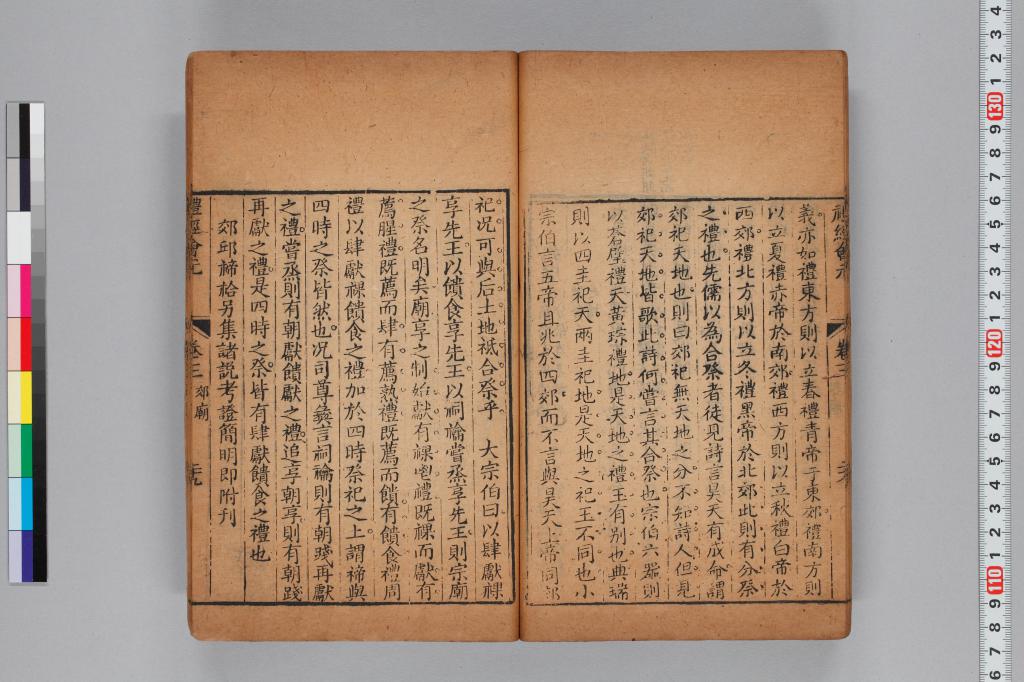 義亦如禮東方則以立春禮青帝于東郊禮南方則
以立夏禮赤帝於南郊禮西方則以立秋禮白帝於
西郊禮北方則以立冬禮黑帝於北郊此則有分祭
之禮也先儒以為合祭者徒見詩言昊天有成命謂
郊祀天地也則曰郊祀無天地之分不知詩人但是
郊祀天地皆歌此詩何嘗言其合祭也宗伯六器則
以蒼璧禮天黃琮禮地是天地之禮玉有别也典瑞
則以四圭祀天兩圭祀地是天地之祀玉不同也小
宗伯言五帝且兆於四郊而不言與昊天上帝同郊
祀况可與后土地祇合祭乎　大宗伯曰以肆獻祼
享先王以饋食享先王以祠禴嘗烝享先王則宗廟
之祭名明矣廟享之制始獻有祼鬯禮既祼而獻有
薦腥禮既薦而肆有薦熟禮既薦而饋有饋食禮周
禮以肆獻祼饋食之禮加於四時祭祀之上謂禘與
四時之祭皆然也况司尊彝言祠禴則有朝踐再獻
之禮嘗烝則有朝獻饋獻之禮追享朝享則有朝踐
再獻之禮是四時之祭皆有肆獻饋食之禮也
郊邱禘祫另集諸説考證簡明即附刊
禮經會元
卷三
郊廟